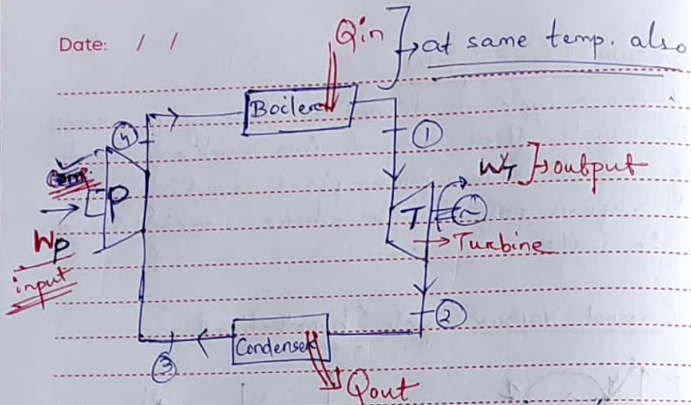 Date: / /
Qin
at same temp. also
Boiler
4
1
WT
output
P
T
Wp
Turbine
input
2
Condenser
3
Qout